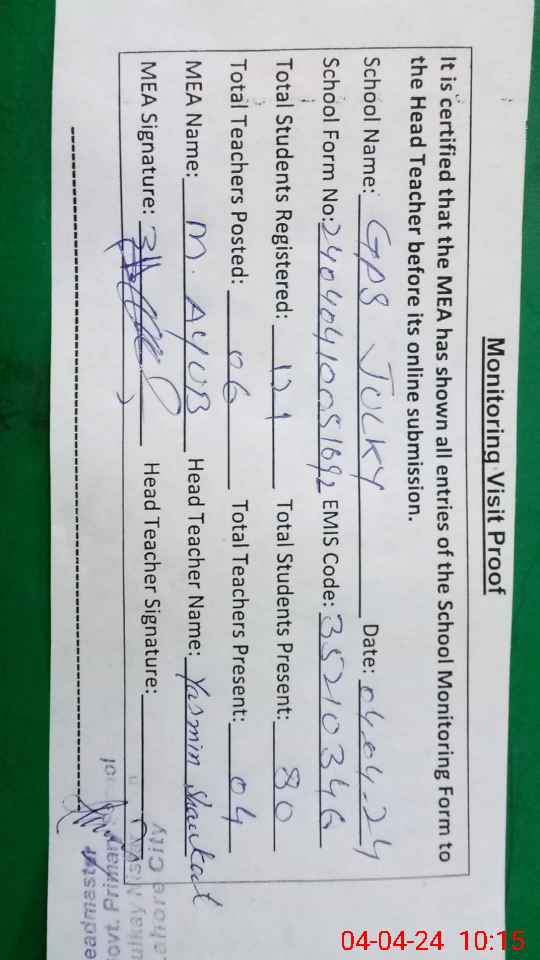 Monitoring Visit Proof
It is certified that the MEA has shown all entries of the School Monitoring Form to
the Head Teacher before its online submission.
School Name: GPS JULKY Date: 04.04.24
School Form No: 24040410051692 EMIS Code: 35210346
Total Students Registered: 121 Total Students Present: 80
Total Teachers Posted: 06 Total Teachers Present: 04
MEA Name: M. AYUB Head Teacher Name: Yasmin Shaukat
MEA Signature: Head Teacher Signature:
04-04-24 10:15